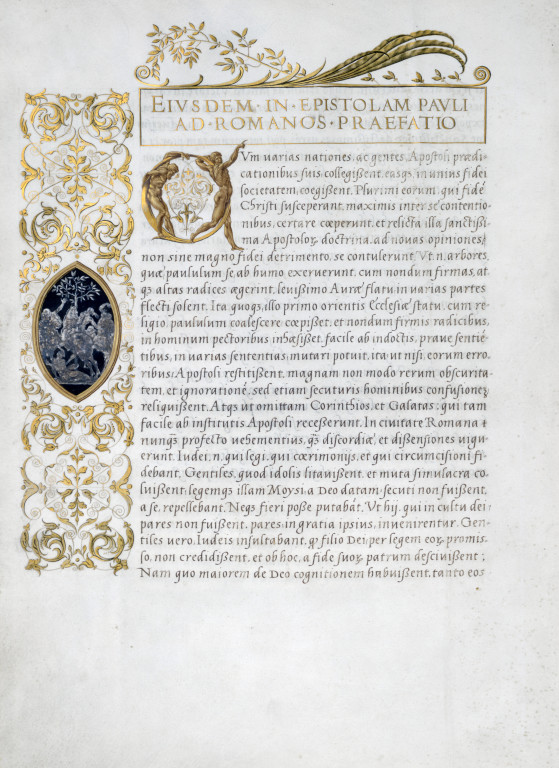 EIVSDEM · IN · EPISTOLAM PAVLI
AD · ROMANOS · PRAEFATIO
CVm varias nationes, ac gentes, Apostoli prædi-
cationibus suis collegißent, easq;, in unius fidei
societatem, coegißent. Plurimi eorum, qui fidē
Christi susceperant, maximis inter se contentio-
nibus, certare cœperunt, et relicta illa sanctißi-
ma Apostoloꝝ doctrina, ad novas opiniones,
non sine magno fidei detrimento, se contulerunt. Vt .n. arbores,
quæ paululum se, ab humo exerverunt, cum nondum firmas, at
qꝫ altas radices ægerint, levißimo Auræ flatu in varias partes
flecti solent. Ita quoqꝫ, illo primo orientis Ecclesiæ statu, cum re-
ligio, paululum coalescere cœpißet, et nondum firmis radicibus,
in hominum pectoribus inhæsißet, facile ab indoctis, prave sentiē
tibus, in varias sententias, mutari potuit, ita ut nisi, eorum erro-
ribus, Apostoli restitißent, magnam non modo rerum obscurita-
tem, et ignorationē, sed etiam secuturis hominibus confusionē,
reliquißent. Atqꝫ ut omittam Corinthios, et Galatas, qui tam
facile ab institutis Apostoli receßerunt. In civitate Romana
nunqꝫ profecto vehementius, qꝫ discordiæ, et dißensiones vigu
erunt. Iudei .n. qui legi, qui cœrimonijs, et qui circumcisioni fi-
debant, Gentiles, quod idolis litavißent, et muta simulacra co-
luißent, legemqꝫ illam Moysi a Deo datam, secuti non fuißent,
a se, repellebant. Neqꝫ fieri poße putabāt, Vt hij, qui in cultu dei
pares non fuißent, pares in gratia ipsius, invenirentur. Gen-
tiles vero, Iudeis insultabant, qꝙ filio Dei per legem eoꝝ, promis-
so, non credidißent, et ob hoc, a fide suoꝝ, patrum descivißent;
Nam quo maiorem de Deo cognitionem habuißent, tanto eos